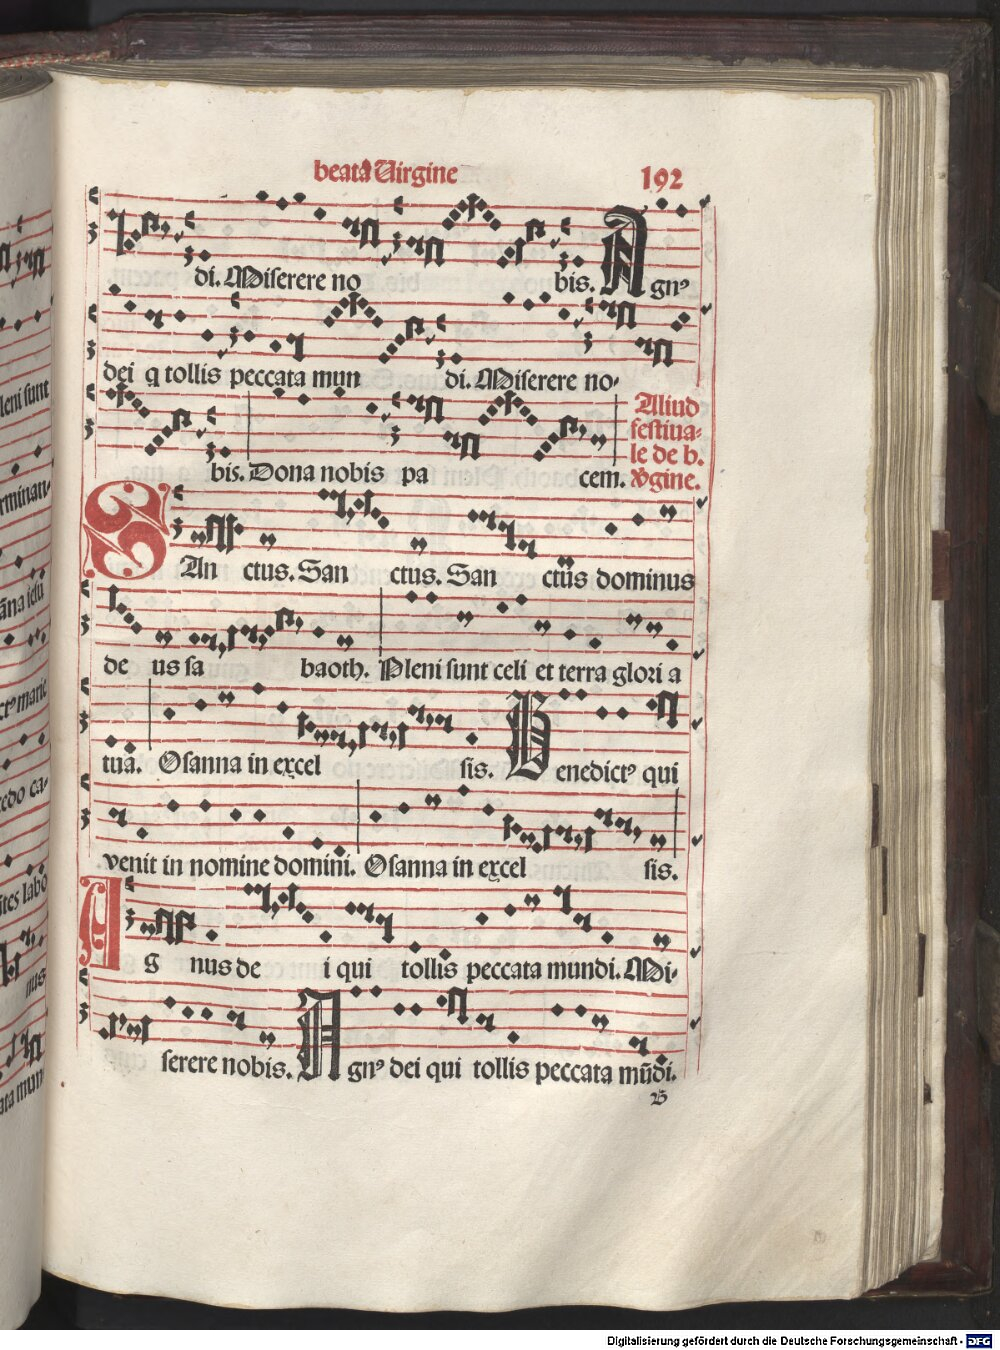 beata Virgine 192
di. Miserere no bis. Agnꝰ
dei q tollis peccata mun di. Miserere no-
bis. Dona nobis pa cem.
Aliud
festiua-
le de b.
Vgine.
SAn ctus. San ctus. San ctus dominus
de us sa baoth. Pleni sunt celi et terra glori a
tua. Osanna in excel sis. Benedictꝰ qui
venit in nomine domini. Osanna in excel sis.
Ag nus de i qui tollis peccata mundi. Mi-
serere nobis. Agnꝰ dei qui tollis peccata mūdi.
B
leni sunt
rminan-
edo ca-
ites labo
nus
ata mun
Digitalisierung gefördert durch die Deutsche Forschungsgemeinschaft - DFG